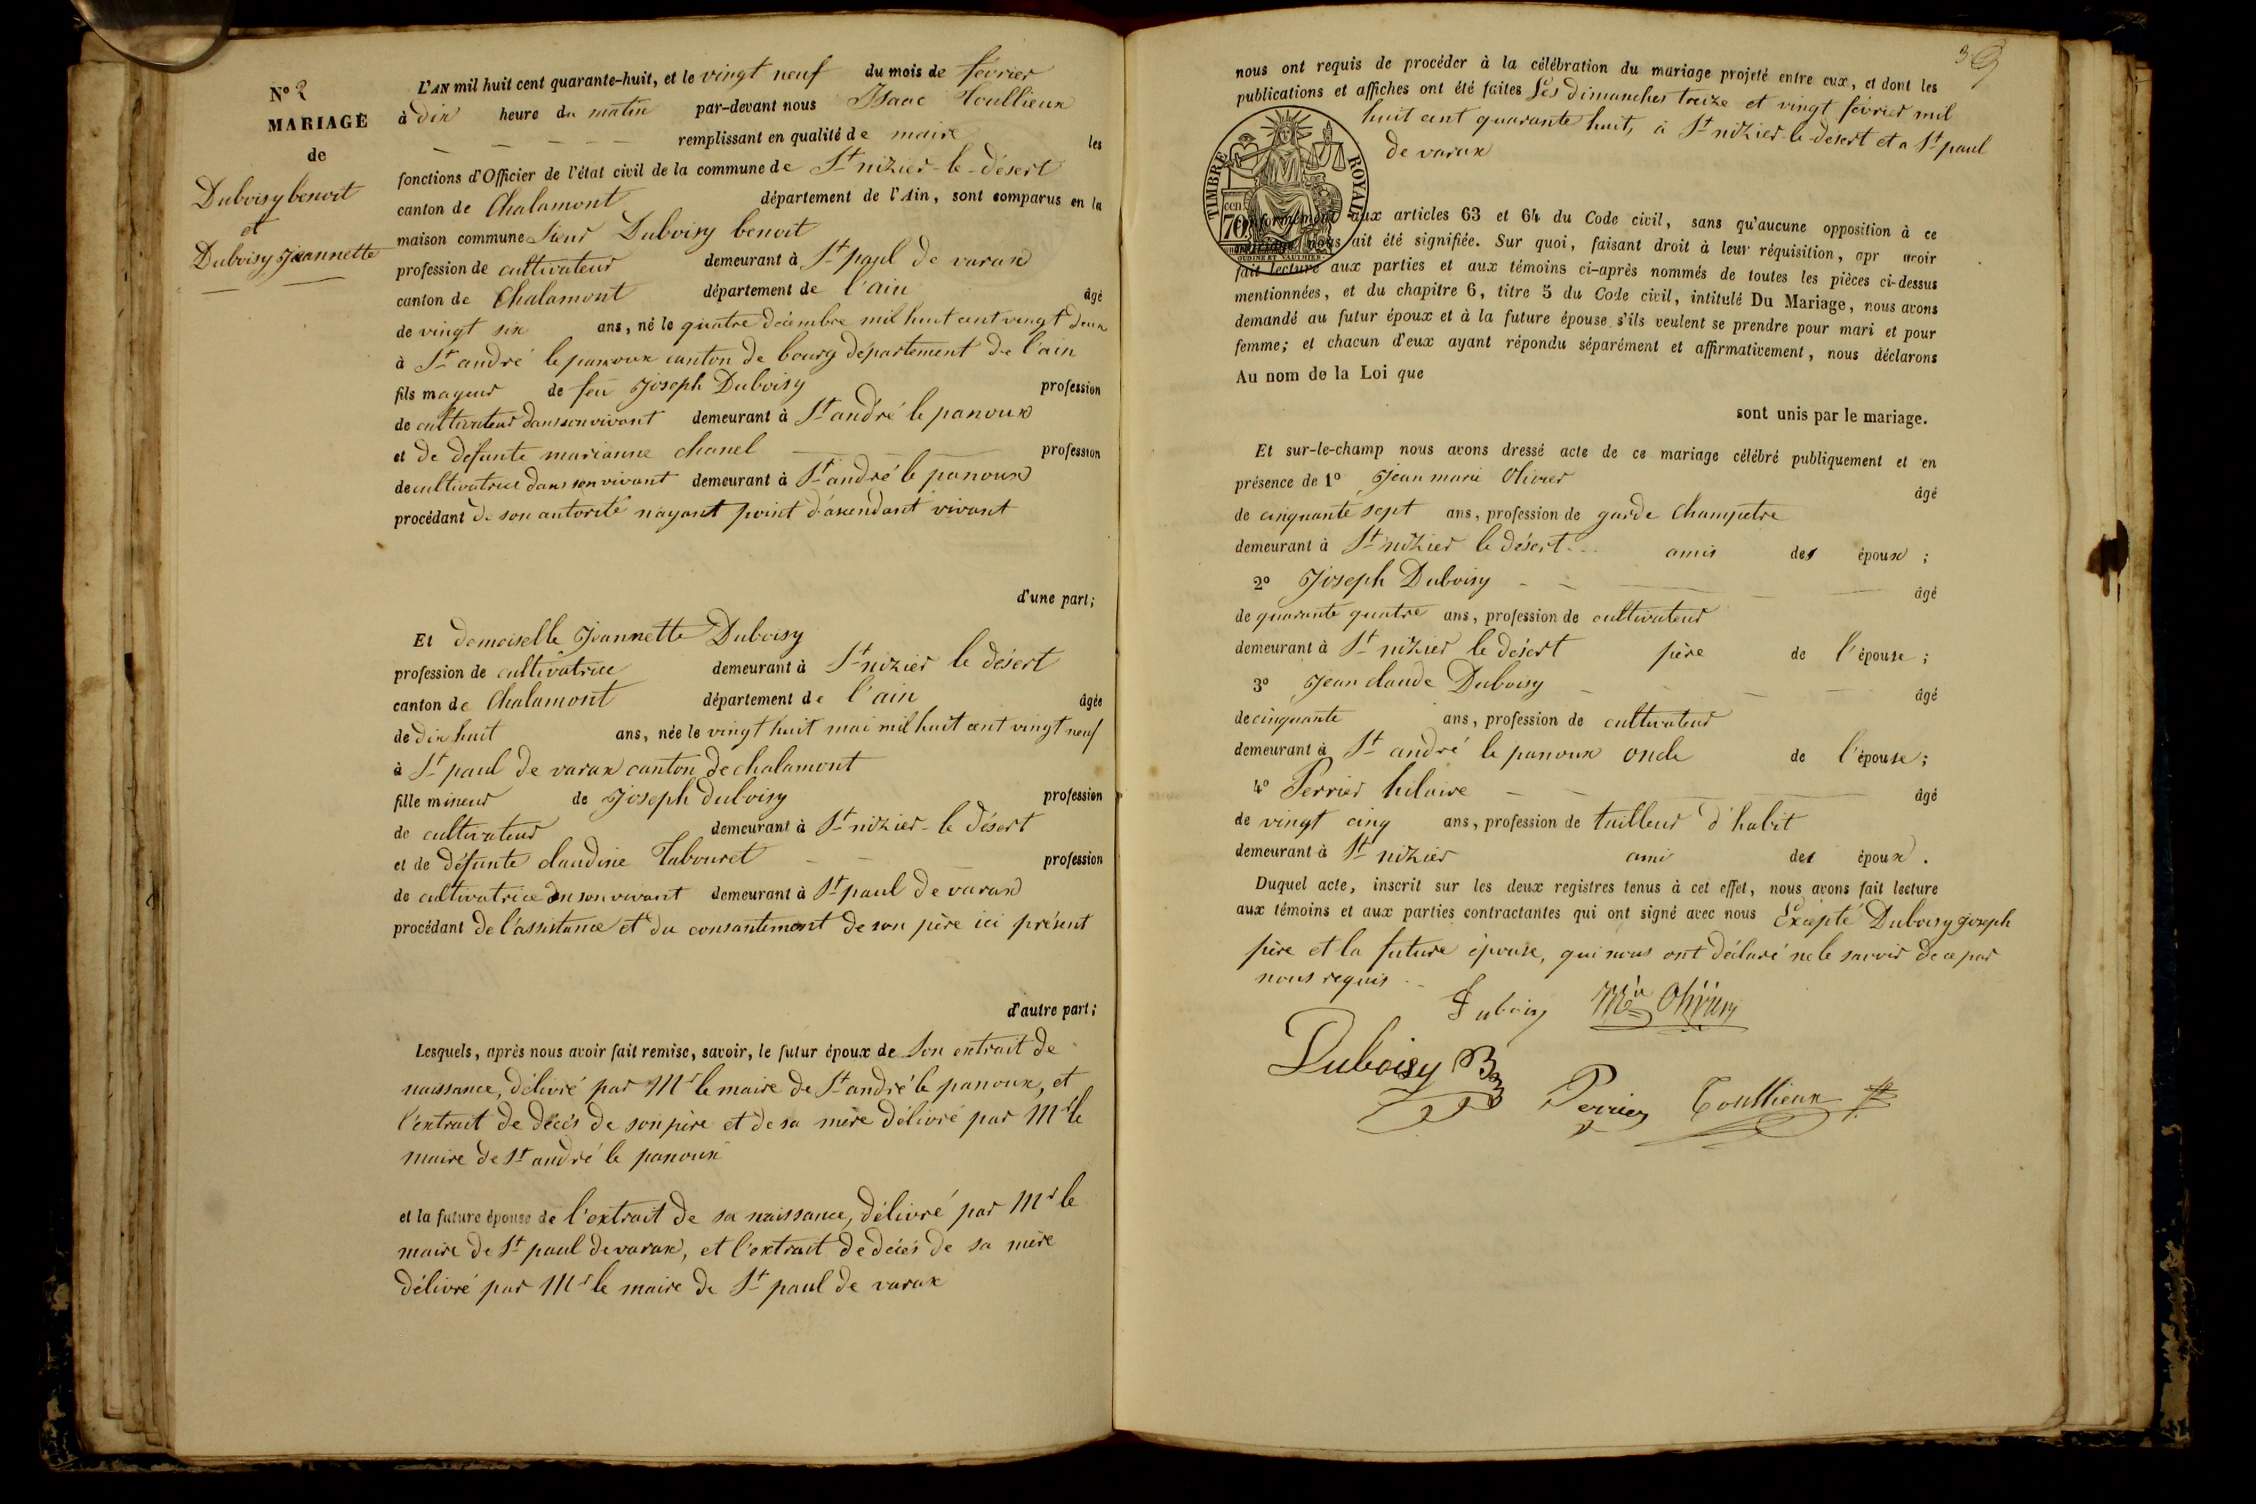 N° 2
MARIAGE
de
Duboisy benoit
et
Duboisy Jeannette
L'AN mil huit cent quarante-huit, et le vingt neuf du mois de février
à dix heure du matin par-devant nous Isaac Toullieux
remplissant en qualité de maire les
fonctions d'Officier de l'état civil de la commune de St nizier-le-désert
canton de Chalamont département de l'Ain, sont comparus en la
maison commune Sieur Duboisy benoit
profession de cultivateur demeurant à St paul de varax
canton de Chalamont département de l'ain âgé
de vingt six ans, né le quatre décembre mil huit cent vingt deux
à St andré le panoux canton de bourg département de l'ain
fils mayeur de feu Joseph Duboisy profession
de cultivateur dans son vivant demeurant à St andré le panoux
et de défunte marianne chanel profession
de cultivatrice dans son vivant demeurant à St andré le panoux
procédant de son autorité nayant point d'ascendant vivant
d'une part;
Et demoiselle Jeannette Duboisy
profession de cultivatrice demeurant à St nizier le désert
canton de Chalamont département de l'ain âgée
de dix huit ans, née le vingt huit mai mil huit cent vingt neuf
à St paul de varax canton de chalamont
fille mineur de Joseph duboisy profession
de cultivateur demeurant à St nizier-le désert
et de défunte claudine Tabouret profession
de cultivatrice en son vivant demeurant à St paul de varax
procédant de l'assistance et du consantement de son père ici présent
d'autre part;
Lesquels, après nous avoir fait remise, savoir, le futur époux de Son extrait de
naissance, délivré par Mr le maire de St andré le panoux, et
l'extrait de décés de son père et de sa mère délivré par Mr le
maire de St andré le panoux
et la future épouse de l'extrait de sa naissance, délivré par Mr le
maire de St paul de varax, et l'extrait de décés de sa mère
délivré par Mr le maire de St paul de varax
39
nous ont requis de procéder à la célébration du mariage projeté entre eux, et dont les
publications et affiches ont été faites Les dimanches treize et vingt février mil
huit cent quarante huit, à St nizier-le-désert et a St paul
de varax
TIMBRE ROYAL
70 cen.
Conformément aux articles 63 et 64 du Code civil, sans qu'aucune opposition à ce
mariage nous ait été signifiée. Sur quoi, faisant droit à leur réquisition, apr avoir
fait lecture aux parties et aux témoins ci-après nommés de toutes les pièces ci-dessus
mentionnées, et du chapitre 6, titre 5 du Code civil, intitulé Du Mariage, nous avons
demandé au futur époux et à la future épouse s'ils veulent se prendre pour mari et pour
femme; et chacun d'eux ayant répondu séparément et affirmativement, nous déclarons
Au nom de la Loi que
sont unis par le mariage.
Et sur-le-champ nous avons dressé acte de ce mariage célébré publiquement et en
présence de 1° Jean marie Olivier âgé
de cinquante sept ans, profession de garde Champetre
demeurant à St nizier le désert amis des époux ;
2° Joseph Duboisy âgé
de quarante quatre ans, profession de cultivateur
demeurant à St nizier le désert père de l'épouse ;
3° Jean claude Duboisy âgé
de cinquante ans, profession de cultivateur
demeurant à St andré le panoux oncle de l'épouse ;
4° Perrier hilaire âgé
de vingt cinq ans, profession de tailleur d'habit
demeurant à St nizier ami des époux .
Duquel acte, inscrit sur les deux registres tenus à cet effet, nous avons fait lecture
aux témoins et aux parties contractantes qui ont signé avec nous Excepté Duboisy joseph
père et la future épouse, qui nous ont déclaré ne le savoir de ce par
nous requis
Duboisy B
Perrier Toullieux